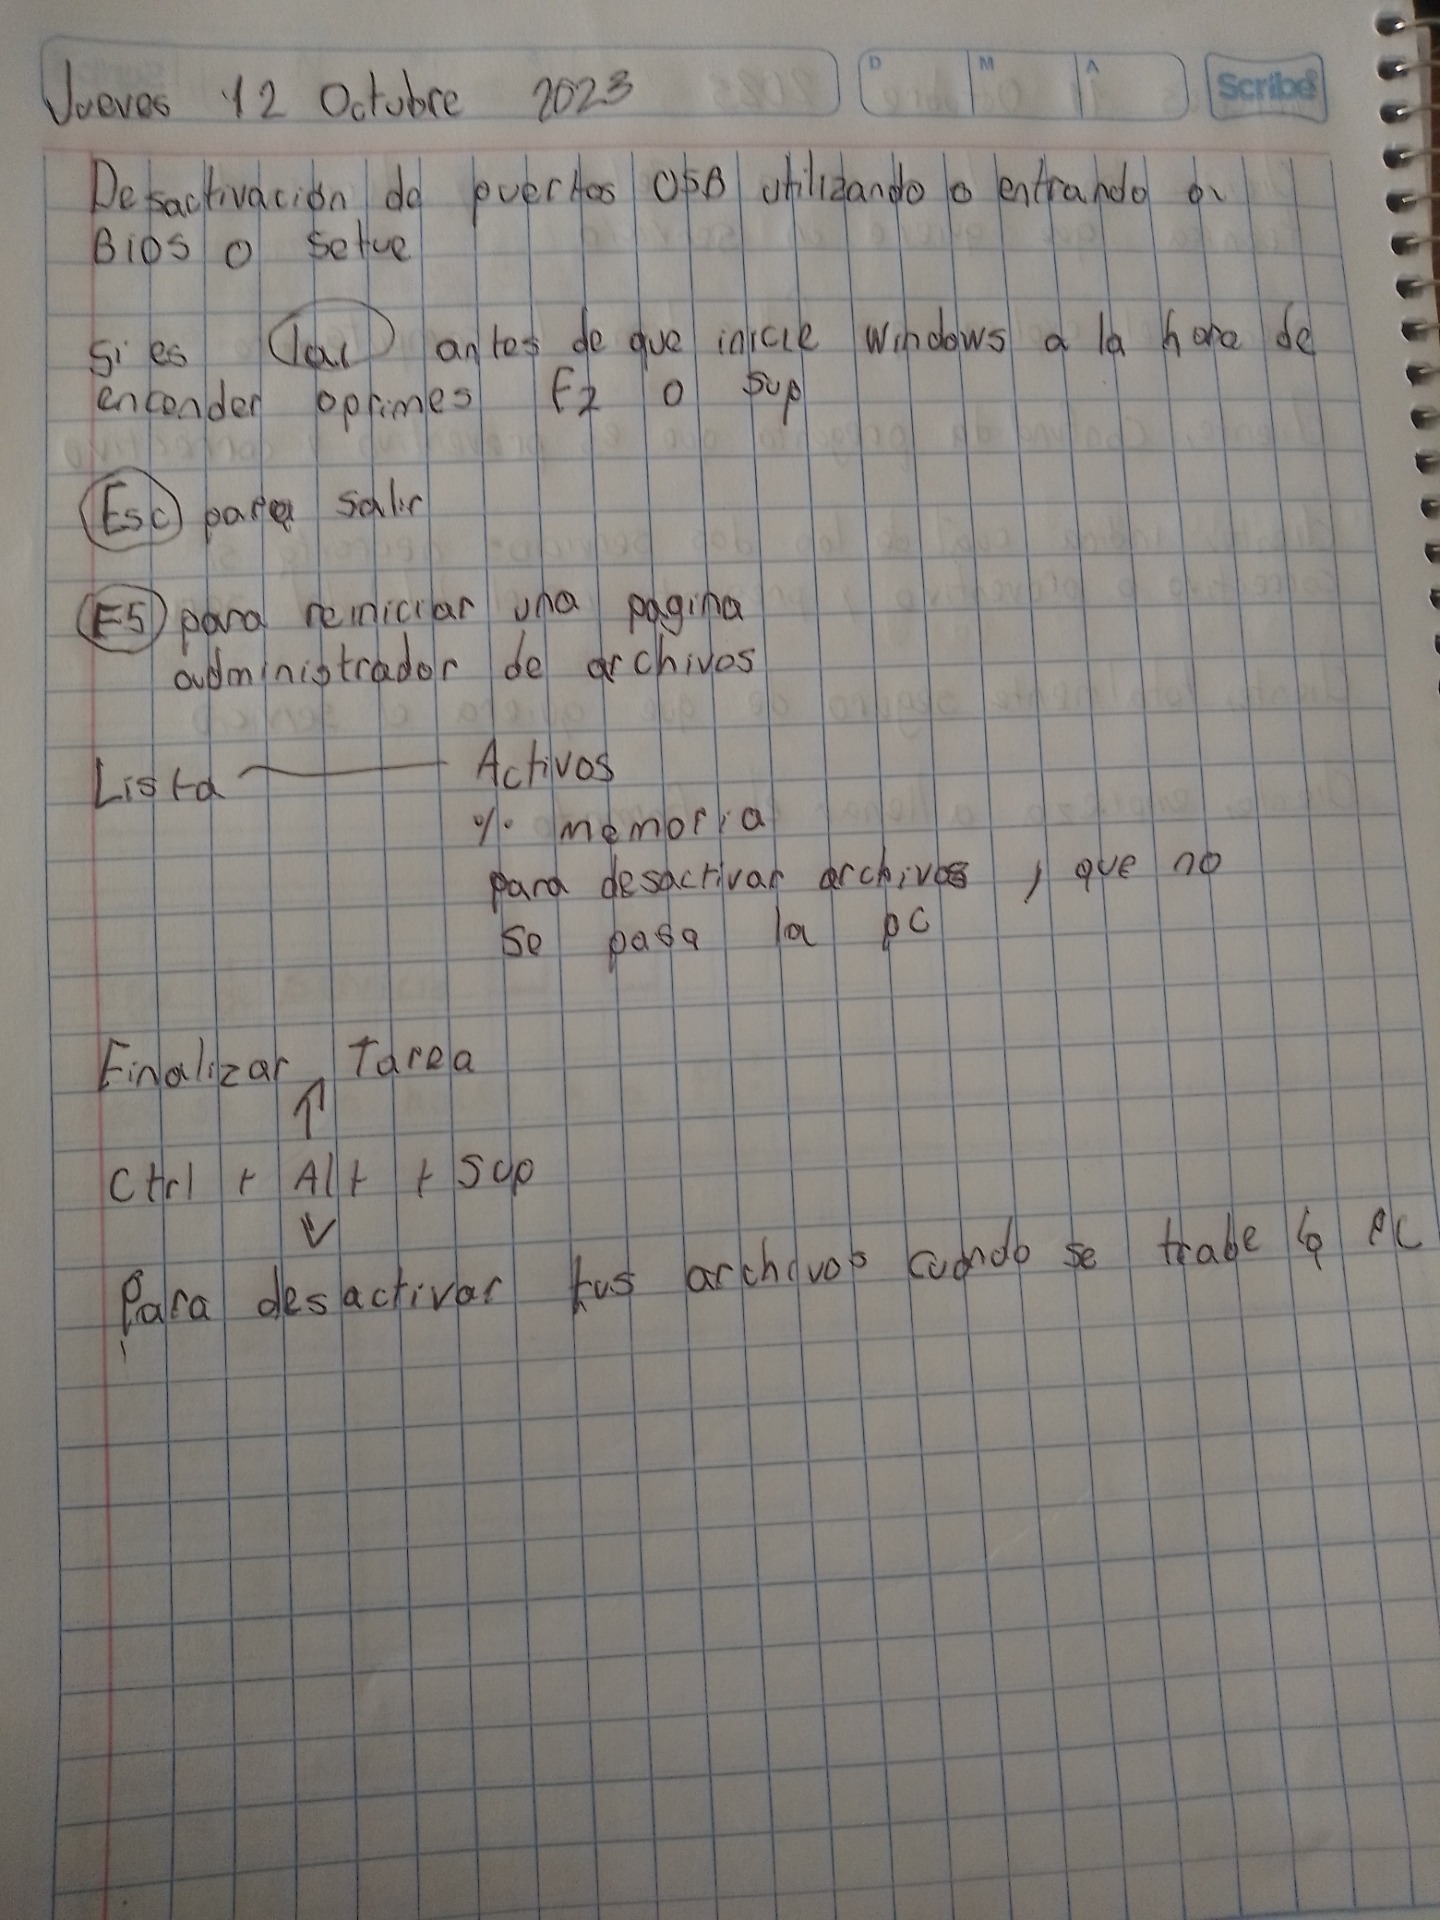 Jueves 12 Octubre 2023
D M A
Scribe
Desactivación de puertos USB utilizando o entrando a
Bios o setue
Si es antes de que inicie Windows a la hora de
encender oprimes F2 o Sup
Esc para salir
F5 para reiniciar una pagina
administrador de archivos
Lista — Activos
% memoria
para desactivar archivos , que no
se pasa la pc
Finalizar Tarea
↑
Ctrl + Alt + Sup
↓
Para desactivar tus archivos cuando se trabe la PC